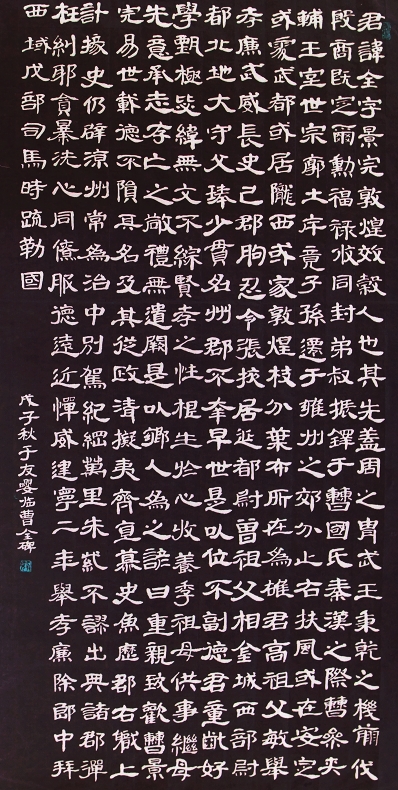 君諱全字景完敦煌效穀人也其先蓋周之胄武王秉乾之機翦伐
殷商既定爾勳福祿攸同封弟叔振鐸于曹國氏秦漢之際曹參夾
輔王室世宗廓土斥竟子孫遷于雍州之郊分止右扶風或在安定
或處武都或居隴西或家敦煌枝分葉布所在為雄君高祖父敏舉
孝廉武威長史巴郡朐忍令張掖居延都尉曾祖父相金城西部尉
都北地大守父琫少貫名州郡不幸早世是以位不副德君童齔好
學甄極毖緯無文不綜賢孝之性根生於心收養季祖母供事繼母
先意承志存亡之敬禮無遺闕是以鄉人為之諺曰重親致歡曹景
完易世載德不隕其名及其從政清擬夷齊直慕史魚歷郡右職上
計掾史仍辟涼州常為治中別駕紀綱萬里朱紫不謬出典諸郡彈
枉糾邪貪暴洗心同僚服德遠近憚威建寧二年舉孝廉除郎中拜
西域戊部司馬時疏勒國
戊子秋于友嚶临曹全碑